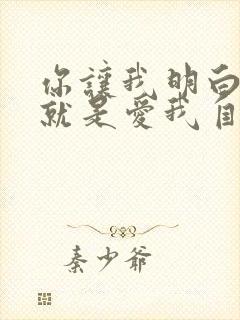 你讓我明白
就是愛我自
秦少爺